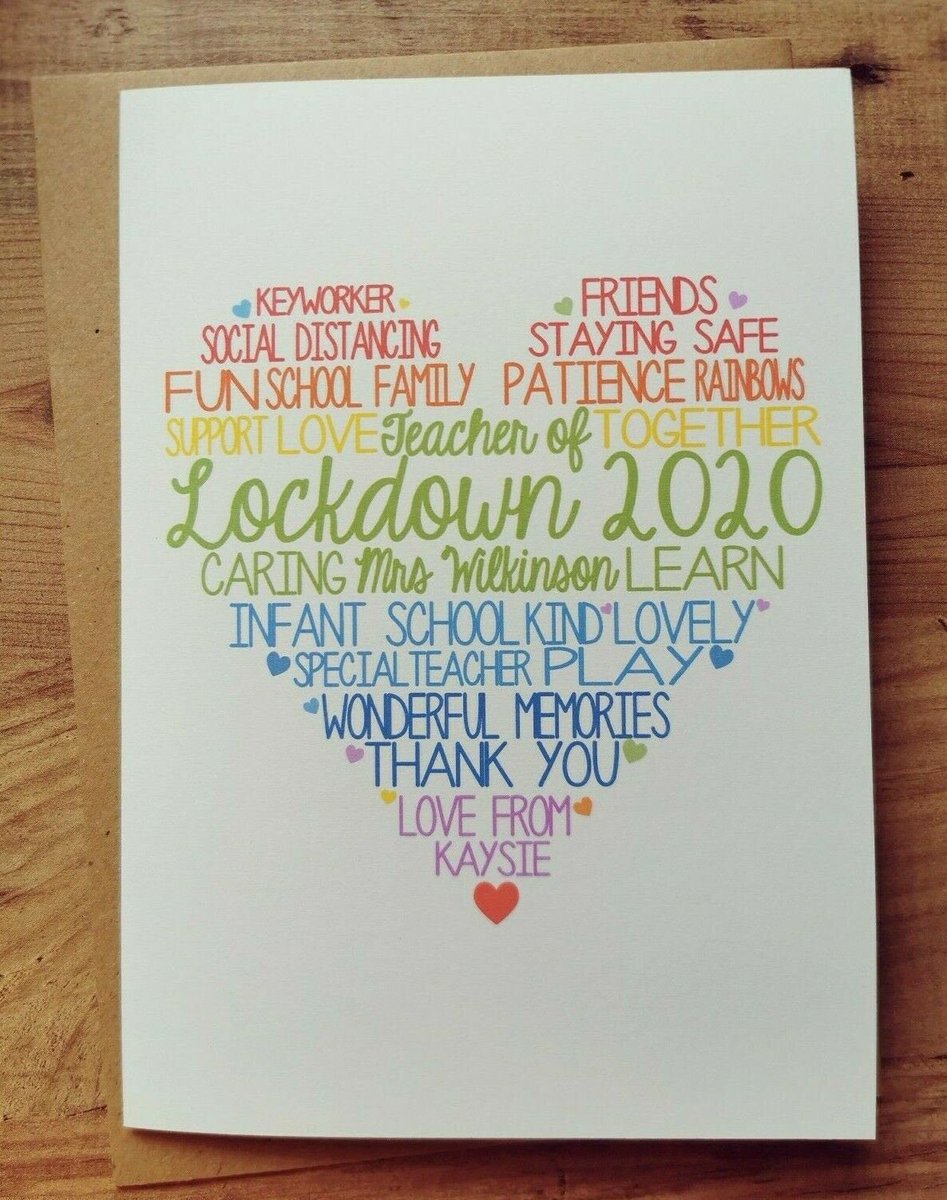 KEYWORKER FRIENDS
SOCIAL DISTANCING STAYING SAFE
FUN SCHOOL FAMILY PATIENCE RAINBOWS
SUPPORT LOVE Teacher of TOGETHER
Lockdown 2020
CARING Mrs Wilkinson LEARN
INFANT SCHOOL KIND LOVELY
SPECIAL TEACHER PLAY
WONDERFUL MEMORIES
THANK YOU
LOVE FROM
KAYSIE